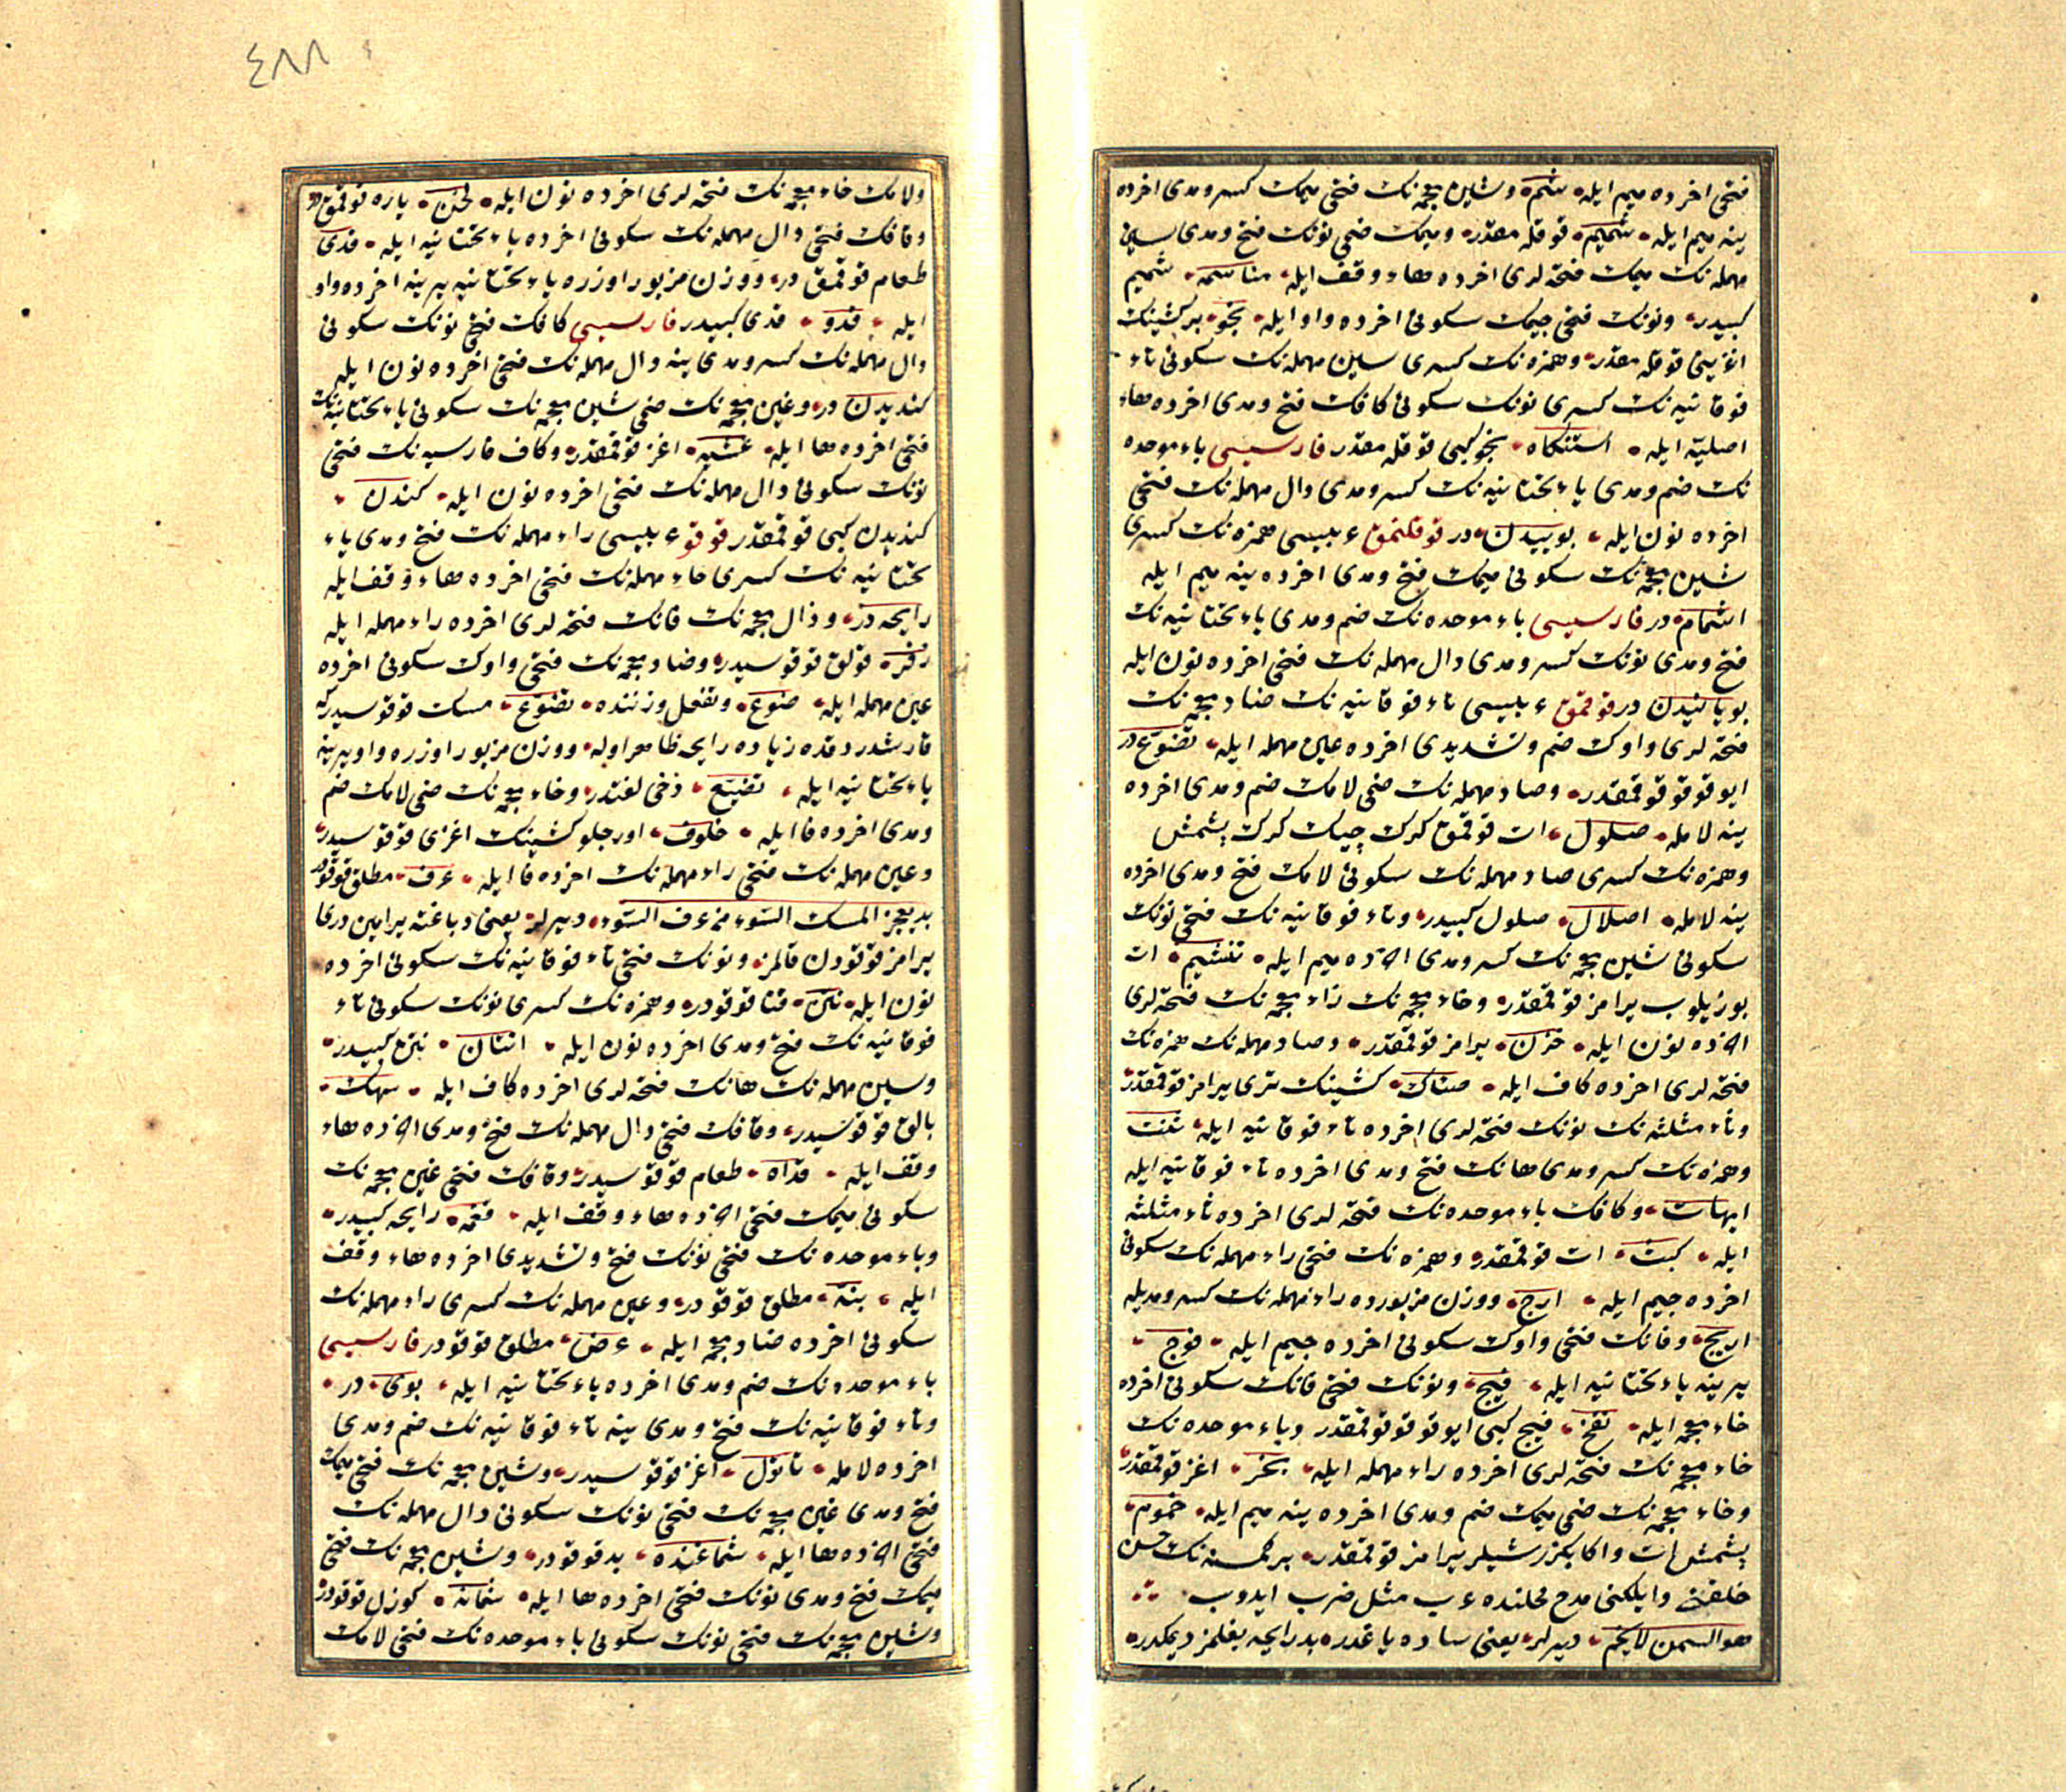 فتحی اخرده میم ایله شمم وشین معجمه نك فتحی میمك كسر ومدی اخرده
ینه میم ایله شمیم قوقلامقدر ومیمك ضمی نونك فتح ومدی سین
مهمله نك میمك فتحه لری اخرده هاء وقف ایله مناسمه شمیم
كبیدر ونونك فتحی جیمك سكونی اخرده واو ایله نجو بر كشینك
اغزینی قوقلامقدر وهمزه نك كسری سین مهمله نك سكونی تاء
فوقانیه نك كسری نونك سكونی كافك فتح ومدی اخرده هاء
اصلیه ایله استنكاه نجو كبی قوقلامقدر فارسیسی باء موحده
نك ضم ومدی یاء تحتانیه نك كسر ومدی دال مهمله نك فتحی
اخرده نون ایله بوییدن در قوقلنمق عربیسی همزه نك كسری
شین معجمه نك سكونی میمك فتح ومدی اخرده ینه میم ایله
اشمام در فارسیسی باء موحده نك ضم ومدی یاء تحتانیه نك
فتح ومدی نونك كسر ومدی دال مهمله نك فتحی اخرده نون ایله
بویانیدن در قوقمق عربیسی تاء فوقانیه نك ضاد معجمه نك
فتحه لری واوك ضم وتشدیدی اخرده عین مهمله ایله تضوع در
ایو قوقو قوقمقدر وصاد مهمله نك ضمی لامك ضم ومدی اخرده
ینه لامله صلول ات قوقمق كرك چیك كرك پشمش
وهمزه نك كسری صاد مهمله نك سكونی لامك فتح ومدی اخرده
ینه لامله اصلال صلول كبیدر وتاء فوقانیه نك فتحی نونك
سكونی شین معجمه نك كسر ومدی اخرده میم ایله تنشیم ات
بوزیلوب یرامز قوقمقدر وخاء معجمه نك زاء معجمه نك فتحه لری
اخرده نون ایله خزن یرامز قوقمقدر وصاد مهمله نك همزه نك
فتحه لری اخرده كاف ایله صئك كشینك تری یرامز قوقمقدر
وثاء مثلثه نك نونك فتحه لری اخرده تاء فوقانیه ایله ثنت
وهمزه نك كسر ومدی هانك فتح ومدی اخرده تاء فوقانیه ایله
ایهات وكافك باء موحده نك فتحه لری اخرده ثاء مثلثه
ایله كبث ات قوقمقدر وهمزه نك فتحی راء مهمله نك سكونی
اخرده جیم ایله ارج ووزن مزبورده راء مهمله نك كسر ومدیله
اریج وفانك فتحی واوك سكونی اخرده جیم ایله فوج
یرینه یاء تحتانیه ایله فیج ونونك فتحی فانك سكونی اخرده
خاء معجمه ایله نفخ فیج كبی ایو قوقو قوقمقدر وباء موحده نك
خاء معجمه نك فتحه لری اخرده راء مهمله ایله بخر اغز قوقمقدر
وخاء معجمه نك ضمی میمك ضم ومدی اخرده ینه میم ایله خموم
پشمش ات واكا بكزر شیلر یرامز قوقمقدر بر كمسنه نك حسن
خلقنی وایلكنی مدح محلنده عرب مثل ضرب ایدوب
هو السمن لا یخم دیرلر یعنی ساده یاغدر بد رایحه بغلمز دیمكدر
٤٨٨
ولامك خاء معجمه نك فتحه لری اخرده نون ایله لخن یاره قوقمقدر
وقافك فتحی دال مهمله نك سكونی اخرده یاء تحتانیه ایله قدی
طعام قوقمقدر ووزن مزبور اوزره یاء تحتانیه یرینه اخرده واو
ایله قدو قدی كبیدر فارسیسی كافك فتحی نونك سكونی
دال مهمله نك كسر ومدی ینه دال مهمله نك فتحی اخرده نون ایله
كندیدن در وغین معجمه نك ضمی شین معجمه نك سكونی یاء تحتانیه نك
فتحی اخرده ها ایله غشیه اغز قوقمقدر وكاف فارسیه نك فتحی
نونك سكونی دال مهمله نك فتحی اخرده نون ایله كندن
كندیدن كبی قوقمقدر قوقو عربیسی راء مهمله نك فتح ومدی یاء
تحتانیه نك كسری حاء مهمله نك فتحی اخرده هاء وقف ایله
رایحه در وذال معجمه نك فانك فتحه لری اخرده راء مهمله ایله
ذفر قولتق قوقوسیدر وضاد معجمه نك فتحی واوك سكونی اخرده
عین مهمله ایله ضوع وتفعل وزننده تضوع مسك قوقوسیدر كه
قارشدردقده زیاده رایحه ظاهر اوله ووزن مزبور اوزره واو یرینه
یاء تحتانیه ایله تضیع دخی لغتدر وخاء معجمه نك ضمی لامك ضم
ومدی اخرده فا ایله خلوف اورجلو كشینك اغزی قوقوسیدر
وعین مهمله نك فتحی راء مهمله نك اخرده فا ایله عرف مطلق قوقودر
یعجز المسك السوء من عرف السوء دیرلر یعنی دباغته یرامین دری
یرامز قوقودن قالمز ونونك فتحی تاء فوقانیه نك سكونی اخرده
نون ایله نتن فنا قوقودر وهمزه نك كسری نونك سكونی تاء
فوقانیه نك فتح ومدی اخرده نون ایله انتان نتن كبیدر
وسین مهمله نك هانك فتحه لری اخرده كاف ایله سهك
بالق قوقوسیدر وقافك فتحی دال مهمله نك فتح ومدی اخرده هاء
وقف ایله قداه طعام قوقوسیدر وقافك فتحی غین معجمه نك
سكونی میمك فتحی اخرده هاء وقف ایله فغمه رایحه كبیدر
وباء موحده نك فتحی نونك فتح وتشدیدی اخرده هاء وقف
ایله بنه مطلق قوقودر وعین مهمله نك كسری راء مهمله نك
سكونی اخرده ضاد معجمه ایله عرض مطلق قوقودر فارسیسی
باء موحده نك ضم ومدی اخرده یاء تحتانیه ایله بوی در
وتاء فوقانیه نك فتح ومدی ینه تاء فوقانیه نك ضم ومدی
اخرده لامله تاتول اغز قوقوسیدر وشین معجمه نك فتحی میمك
فتح ومدی غین معجمه نك فتحی نونك سكونی دال مهمله نك
فتحی اخرده ها ایله شماغنده بد قوقودر وشین معجمه نك فتحی
میمك فتح ومدی نونك فتحی اخرده ها ایله شمانه كوزل قوقودر
وشین معجمه نك فتحی نونك سكونی باء موحده نك فتحی لامك